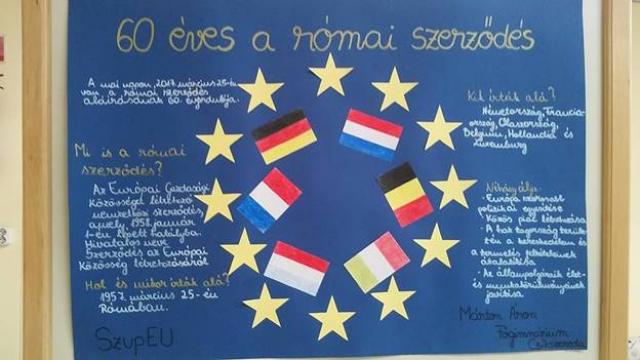 60 éves a római szerződés
A mai napon, 2017. március 25-én
van a római szerződés
aláírásának 60. évfordulója.
Mi is a római
szerződés?
Az Európai Gazdasági
Közösséget létrehozó
nemzetközi szerződés,
amely 1958. január
1-én lépett hatályba.
Hivatalos neve
Szerződés az Európai
Közösség létrehozásáról
Hol és mikor írták alá?
1957. március 25-én
Rómában.
SzupEU
Kik írták alá?
Németország, Francia-
ország, Olaszország,
Belgium, Hollandia és
Luxemburg
Néhány célja:
- Európa
politikai egysége
- Közös piac létrehozása
- A hat tagország terüle-
tén a kereskedelem és
a termelés feltételeinek
átalakítása
- Az állampolgárok élet-
és munkakörülményeinek
javítása
Márton Áron
Főgimnázium
Csíkszereda